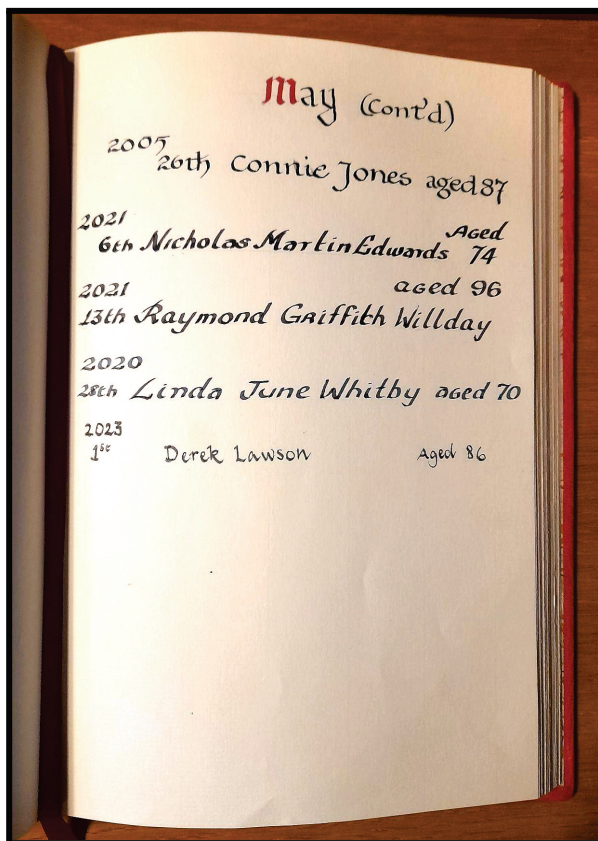 May (Cont'd)
2005
26th Connie Jones aged 87
2021 Aged
6th Nicholas Martin Edwards 74
2021 aged 96
13th Raymond Griffith Willday
2020
28th Linda June Whitby aged 70
2023
1st Derek Lawson Aged 86